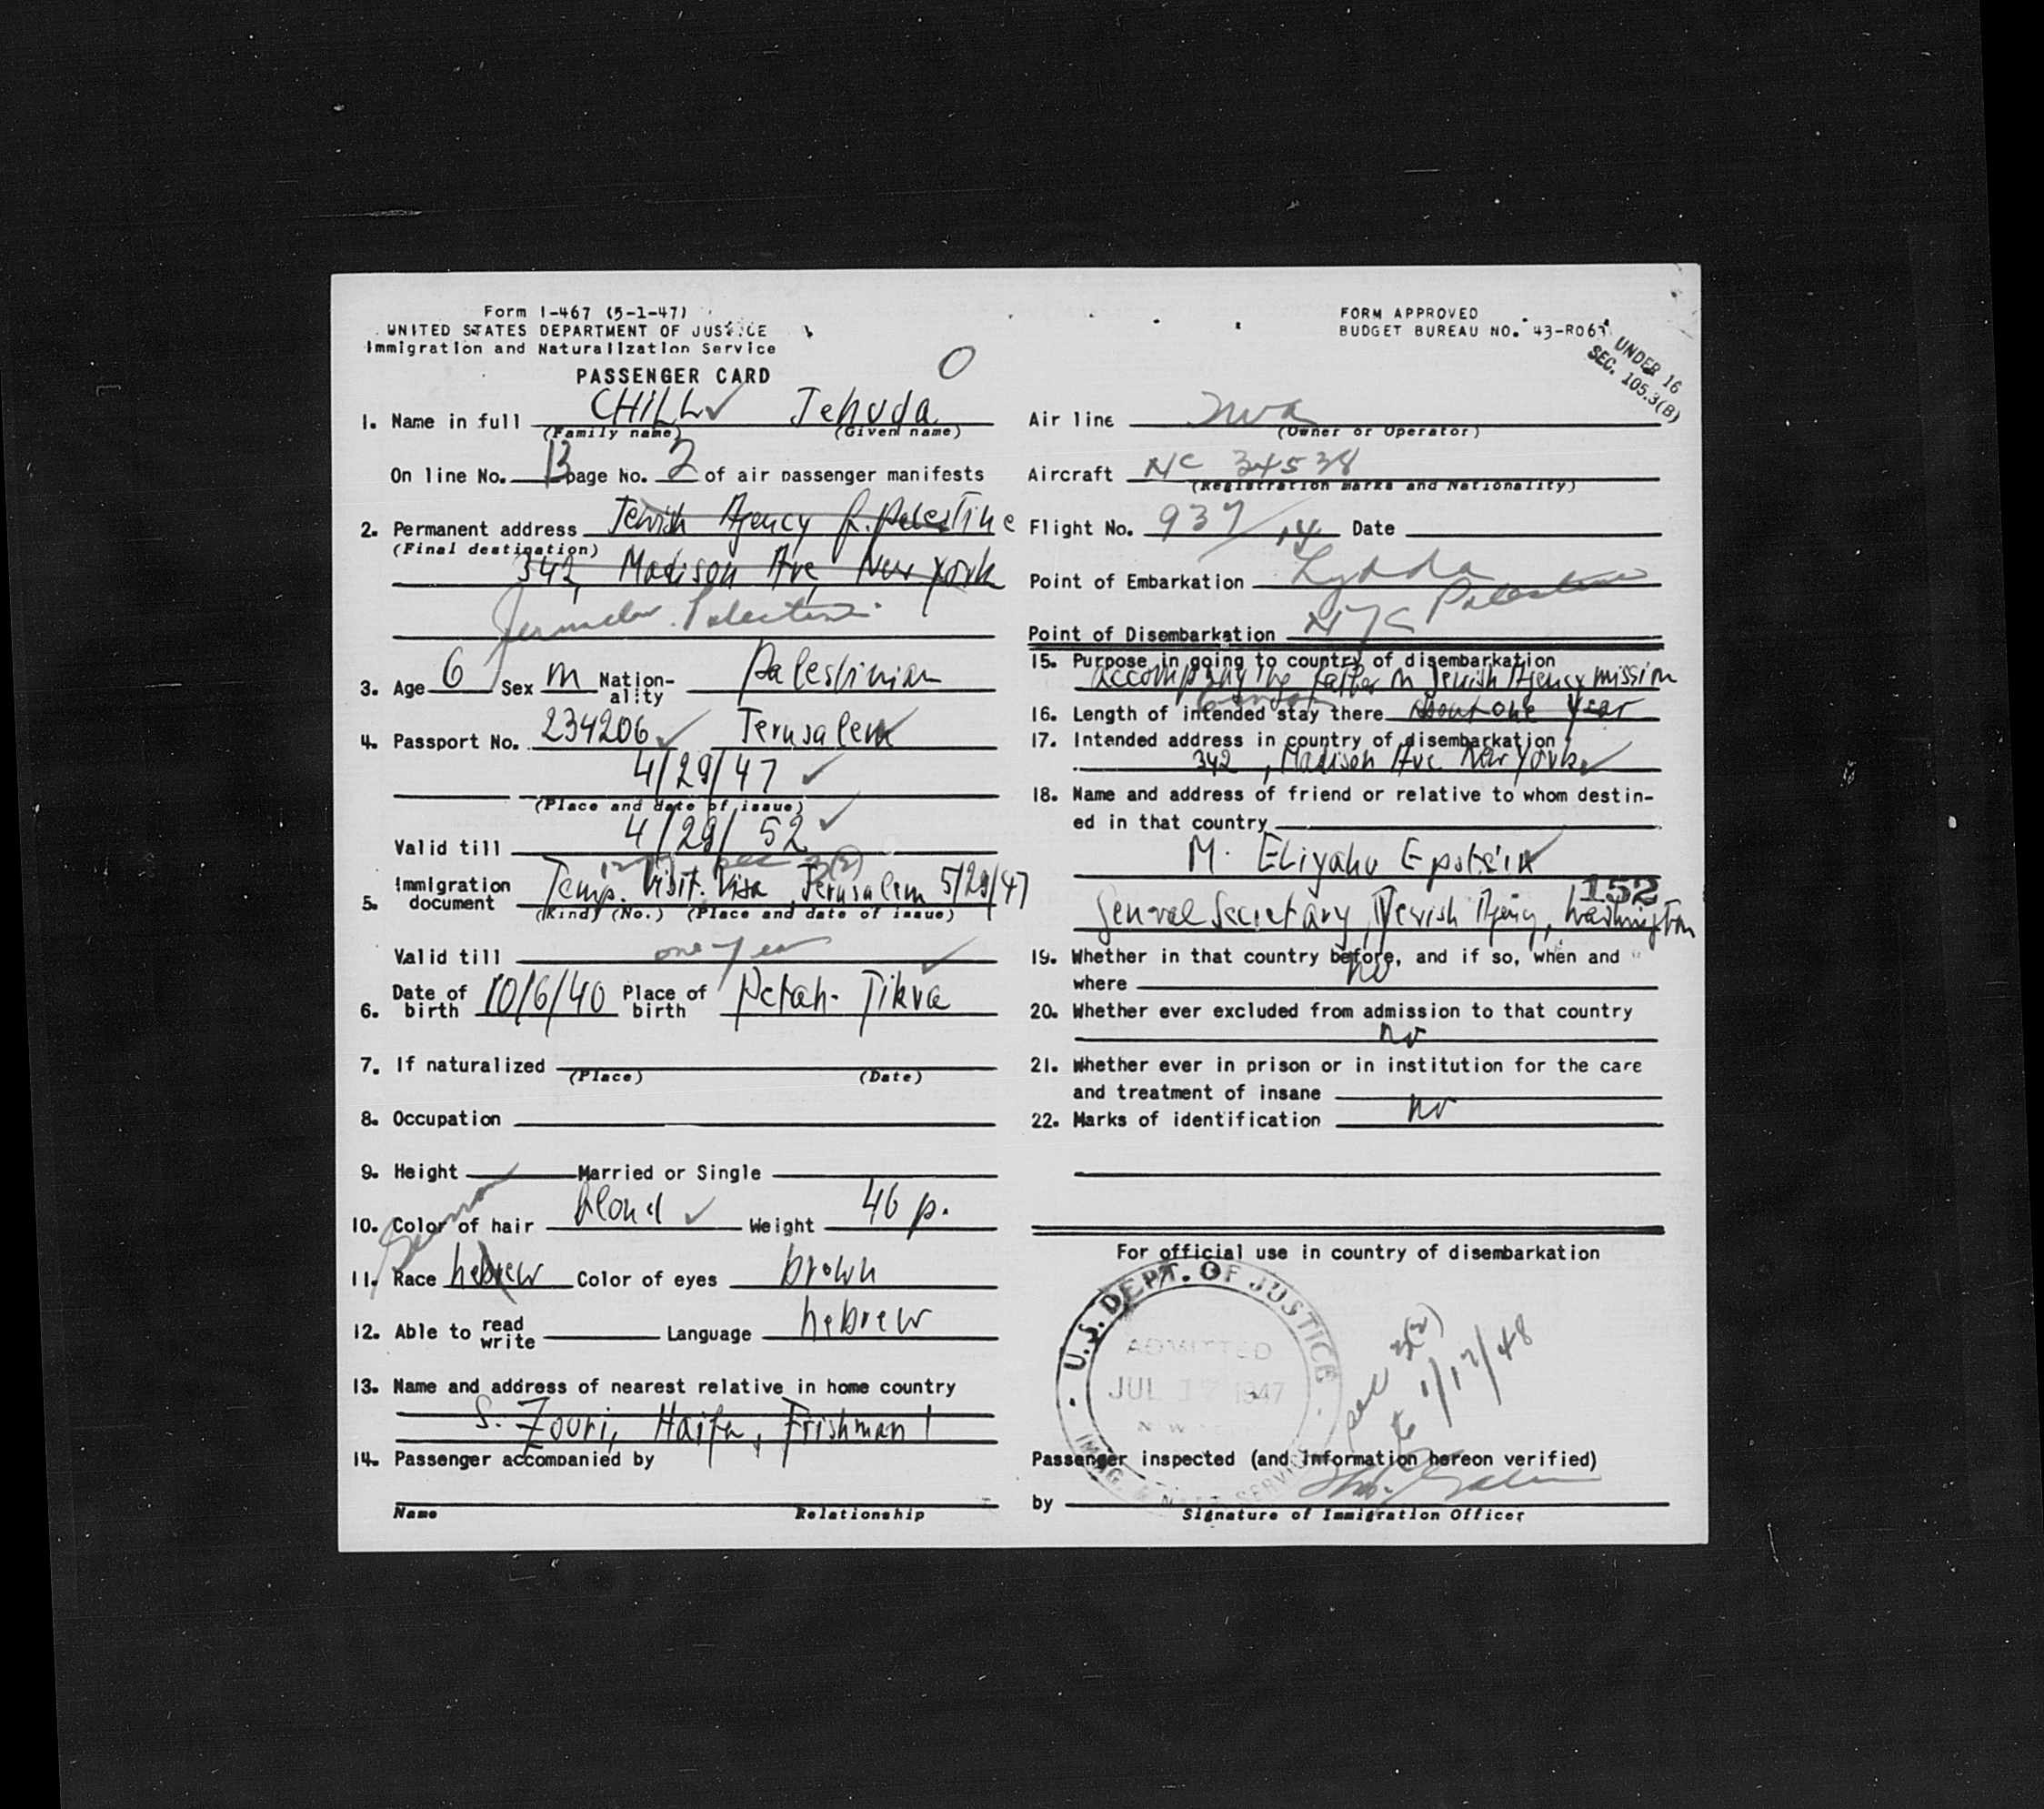 Form I-467 (5-1-47)
UNITED STATES DEPARTMENT OF JUSTICE
Immigration and Naturalization Service
PASSENGER CARD
O
FORM APPROVED
BUDGET BUREAU NO. 43-R063
UNDER 16
SEC. 105.3(B)
1. Name in full CHILL Jehuda
(Family name) (Given name)
On line No. 13 page No. 2 of air passenger manifests
2. Permanent address Jewish Agency f. Palestine
(Final destination)
342, Madison Ave, New York
Palestine
3. Age 6 Sex m Nation-ality Palestinian
4. Passport No. 234206 Jerusalem
4/29/47
(Place and date of issue)
Valid till 4/29/52
3(2)
5. Immigration document Temp. Visit. Visa, Jerusalem 5/29/47
(Kind) (No.) (Place and date of issue)
Valid till one year
6. Date of birth 10/6/40 Place of birth Petah-Tikva
7. If naturalized
(Place) (Date)
8. Occupation
9. Height Married or Single
10. Color of hair blond Weight 46 p.
11. Race hebrew Color of eyes brown
12. Able to read write Language hebrew
13. Name and address of nearest relative in home country
S. Zouri, Haifa, Frishman 1
14. Passenger accompanied by
Name Relationship
Air line TWA
(Owner or Operator)
Aircraft NC 34538
(Registration marks and Nationality)
Flight No. 937/14 Date
Point of Embarkation Lydda
Palestine
Point of Disembarkation NYC
15. Purpose in going to country of disembarkation
accompanying father on Jewish Agency mission
16. Length of intended stay there about one year
17. Intended address in country of disembarkation
342, Madison Ave New York
18. Name and address of friend or relative to whom destin-
ed in that country
M. Eliyahu Epstein
152
General Secretary, Jewish Agency, Washington
19. Whether in that country before, and if so, when and
where no
20. Whether ever excluded from admission to that country
no
21. Whether ever in prison or in institution for the care
and treatment of insane
22. Marks of identification no
For official use in country of disembarkation
U.S. DEPT. OF JUSTICE
ADMITTED
JUL 17 1947
IMMIG. & NATZ. SERVICE
3(2)
to 1/17/48
Passenger inspected (and information hereon verified)
by
Signature of Immigration Officer